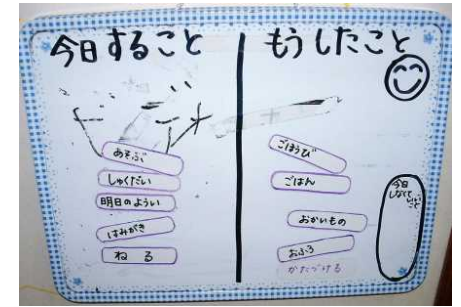 今日すること
あそぶ
しゅくだい
明日のようい
はみがき
ねる
もうしたこと
ごほうび
ごはん
おかいもの
おふろ
かたづける